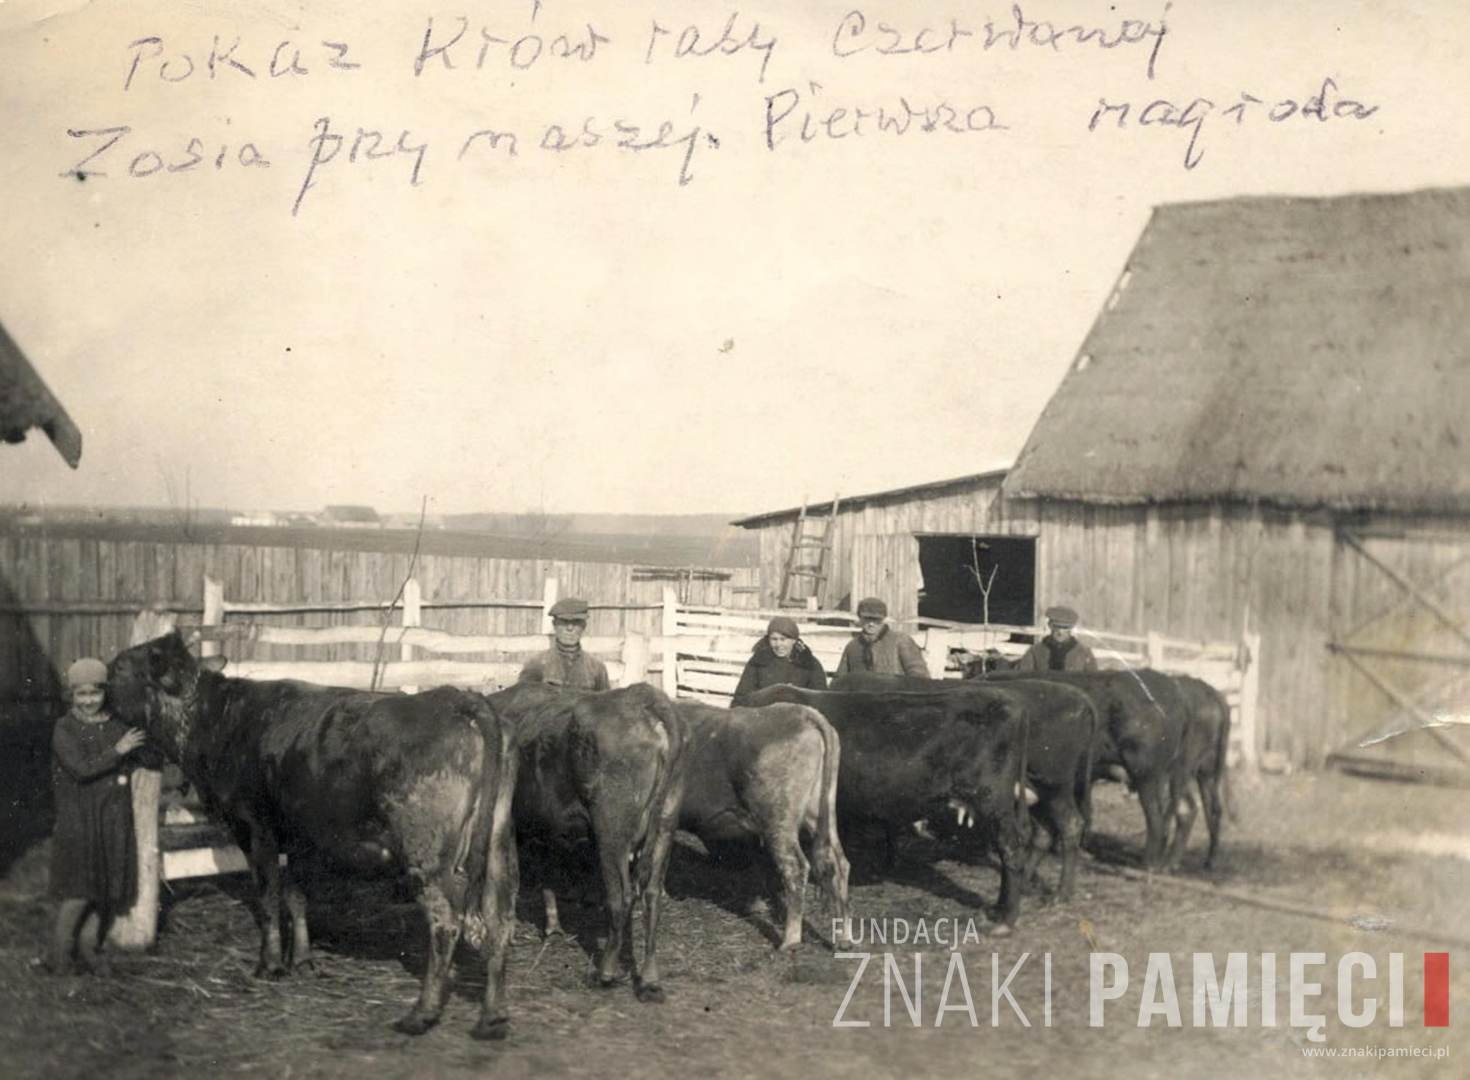 Pokaz Krów rasy Czerwonej
Zosia przy naszej. Pierwsza nagroda
FUNDACJA
ZNAKI PAMIĘCI
www.znakipamieci.pl